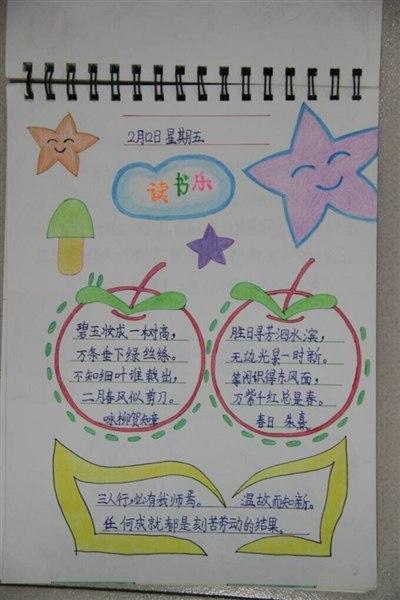 2月12日 星期五
读书乐
碧玉妆成一树高,
万条垂下绿丝绦。
不知细叶谁裁出,
二月春风似剪刀。
咏柳贺知章
胜日寻芳泗水滨,
无边光景一时新。
等闲识得东风面,
万紫千红总是春。
春日 朱熹
三人行,必有我师焉。 温故而知新。
任何成就都是刻苦劳动的结果。